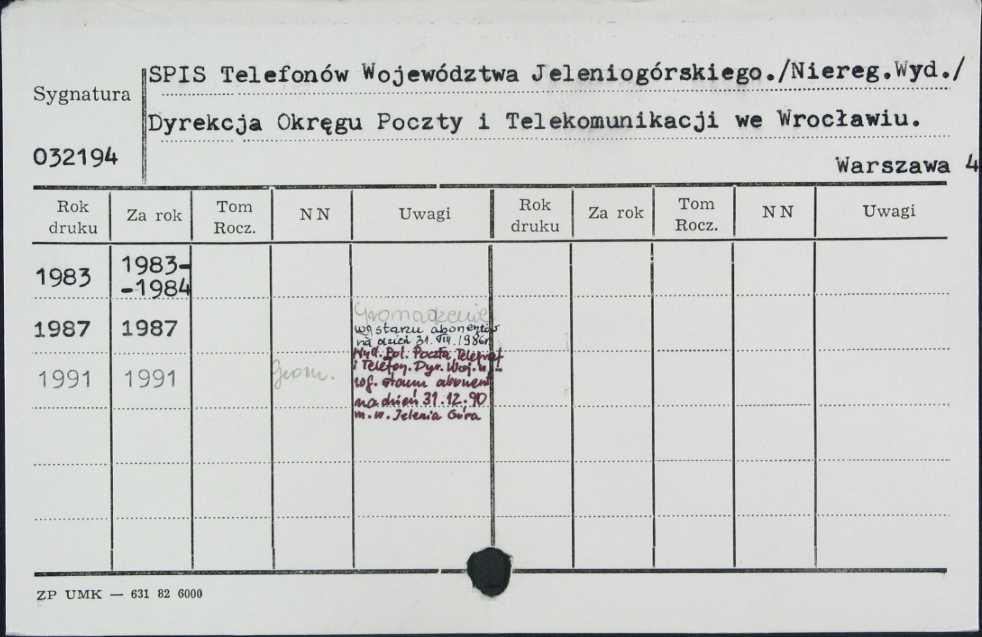 SPIS Telefonów Województwa Jeleniogórskiego./Niereg.Wyd./
Sygnatura
Dyrekcja Okręgu Poczty i Telekomunikacji we Wrocławiu.
032194
Warszawa 4
Rok druku Za rok Tom Rocz. NN Uwagi Rok druku Za rok Tom Rocz. NN Uwagi
1983 1983-
-1984
Gromadzenie
1987 1987 wg stanu abonentów
na dzień 31. VIII.1986r
Wyd. Pol. Poczta, Telegraf
i Telefon. Dyr. Woj. w
1991 1991 Grom. wg. stanu abonent
na dzień 31.12.90
m.w. Jelenia Góra
ZP UMK — 631 82 6000